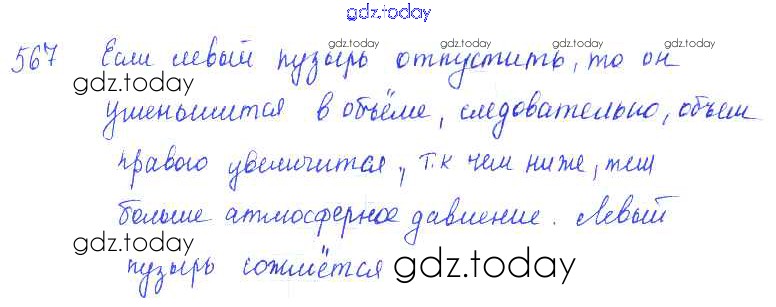 gdz.today
567 Если левый пузырь отпустить, то он
gdz.today gdz.today
gdz.today
уменьшится в объёме, следовательно, объем
правого увеличится, т.к чем ниже, тем
gdz.today
больше атмосферное давление. Левый
gdz.today
пузырь сожмётся gdz.today